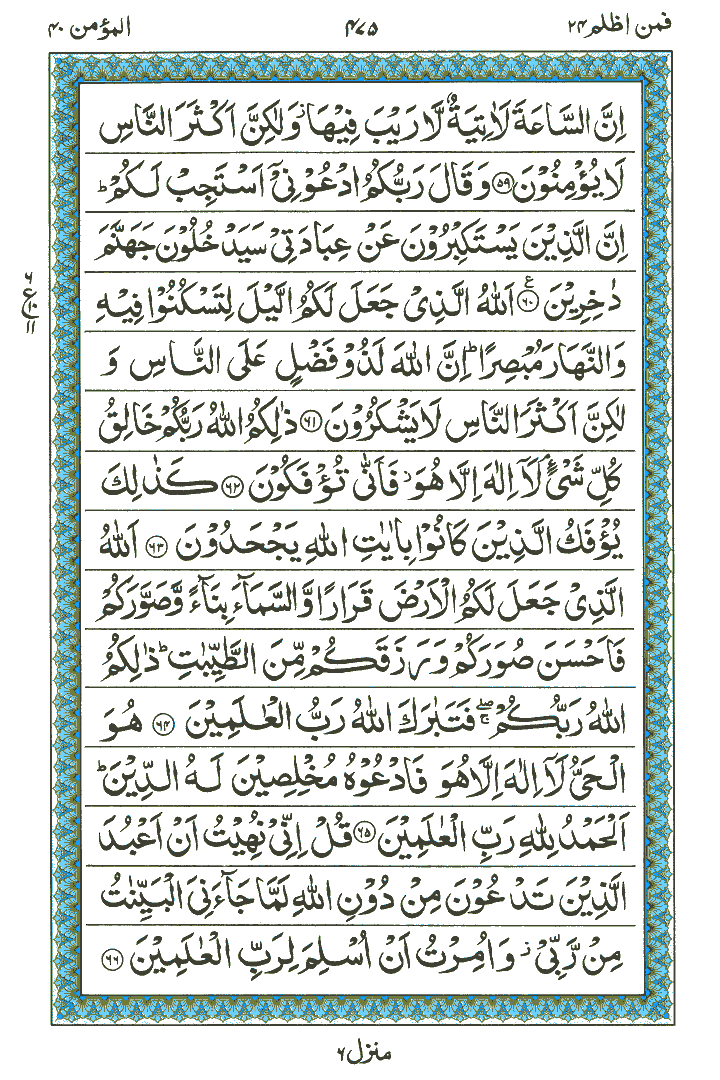 فمن اظلم ۲۴
۴۷۵
المؤمن ۴۰
اِنَّ السَّاعَةَ لَاٰتِيَةٌ لَّا رَيْبَ فِيْهَا ز وَلٰكِنَّ اَكْثَرَ النَّاسِ
لَا يُؤْمِنُوْنَ ۵۹ وَ قَالَ رَبُّكُمُ ادْعُوْنِيْۤ اَسْتَجِبْ لَكُمْ ط
اِنَّ الَّذِيْنَ يَسْتَكْبِرُوْنَ عَنْ عِبَادَتِيْ سَيَدْخُلُوْنَ جَهَنَّمَ
دٰخِرِيْنَ ۶۰ ع اَللّٰهُ الَّذِيْ جَعَلَ لَكُمُ الَّيْلَ لِتَسْكُنُوْا فِيْهِ
۶
ع
۱۰
۱۱
وَالنَّهَارَ مُبْصِرًا ط اِنَّ اللّٰهَ لَذُوْ فَضْلٍ عَلَى النَّاسِ وَ
لٰكِنَّ اَكْثَرَ النَّاسِ لَا يَشْكُرُوْنَ ۶۱ ذٰلِكُمُ اللّٰهُ رَبُّكُمْ خَالِقُ
كُلِّ شَيْءٍ م لَاۤ اِلٰهَ اِلَّا هُوَ ز فَاَنّٰى تُؤْفَكُوْنَ ۶۲ كَذٰلِكَ
يُؤْفَكُ الَّذِيْنَ كَانُوْا بِاٰيٰتِ اللّٰهِ يَجْحَدُوْنَ ۶۳ اَللّٰهُ
الَّذِيْ جَعَلَ لَكُمُ الْاَرْضَ قَرَارًا وَّالسَّمَآءَ بِنَآءً وَّصَوَّرَكُمْ
فَاَحْسَنَ صُوَرَكُمْ وَ رَزَقَكُمْ مِّنَ الطَّيِّبٰتِ ط ذٰلِكُمُ
اللّٰهُ رَبُّكُمْ ج صلے فَتَبٰرَكَ اللّٰهُ رَبُّ الْعٰلَمِيْنَ ۶۴ هُوَ
الْحَيُّ لَاۤ اِلٰهَ اِلَّا هُوَ فَادْعُوْهُ مُخْلِصِيْنَ لَهُ الدِّيْنَ ط
اَلْحَمْدُ لِلّٰهِ رَبِّ الْعٰلَمِيْنَ ۶۵ قُلْ اِنِّيْ نُهِيْتُ اَنْ اَعْبُدَ
الَّذِيْنَ تَدْعُوْنَ مِنْ دُوْنِ اللّٰهِ لَمَّا جَآءَنِيَ الْبَيِّنٰتُ
مِنْ رَّبِّيْ ز وَ اُمِرْتُ اَنْ اُسْلِمَ لِرَبِّ الْعٰلَمِيْنَ ۶۶
منزل ۶